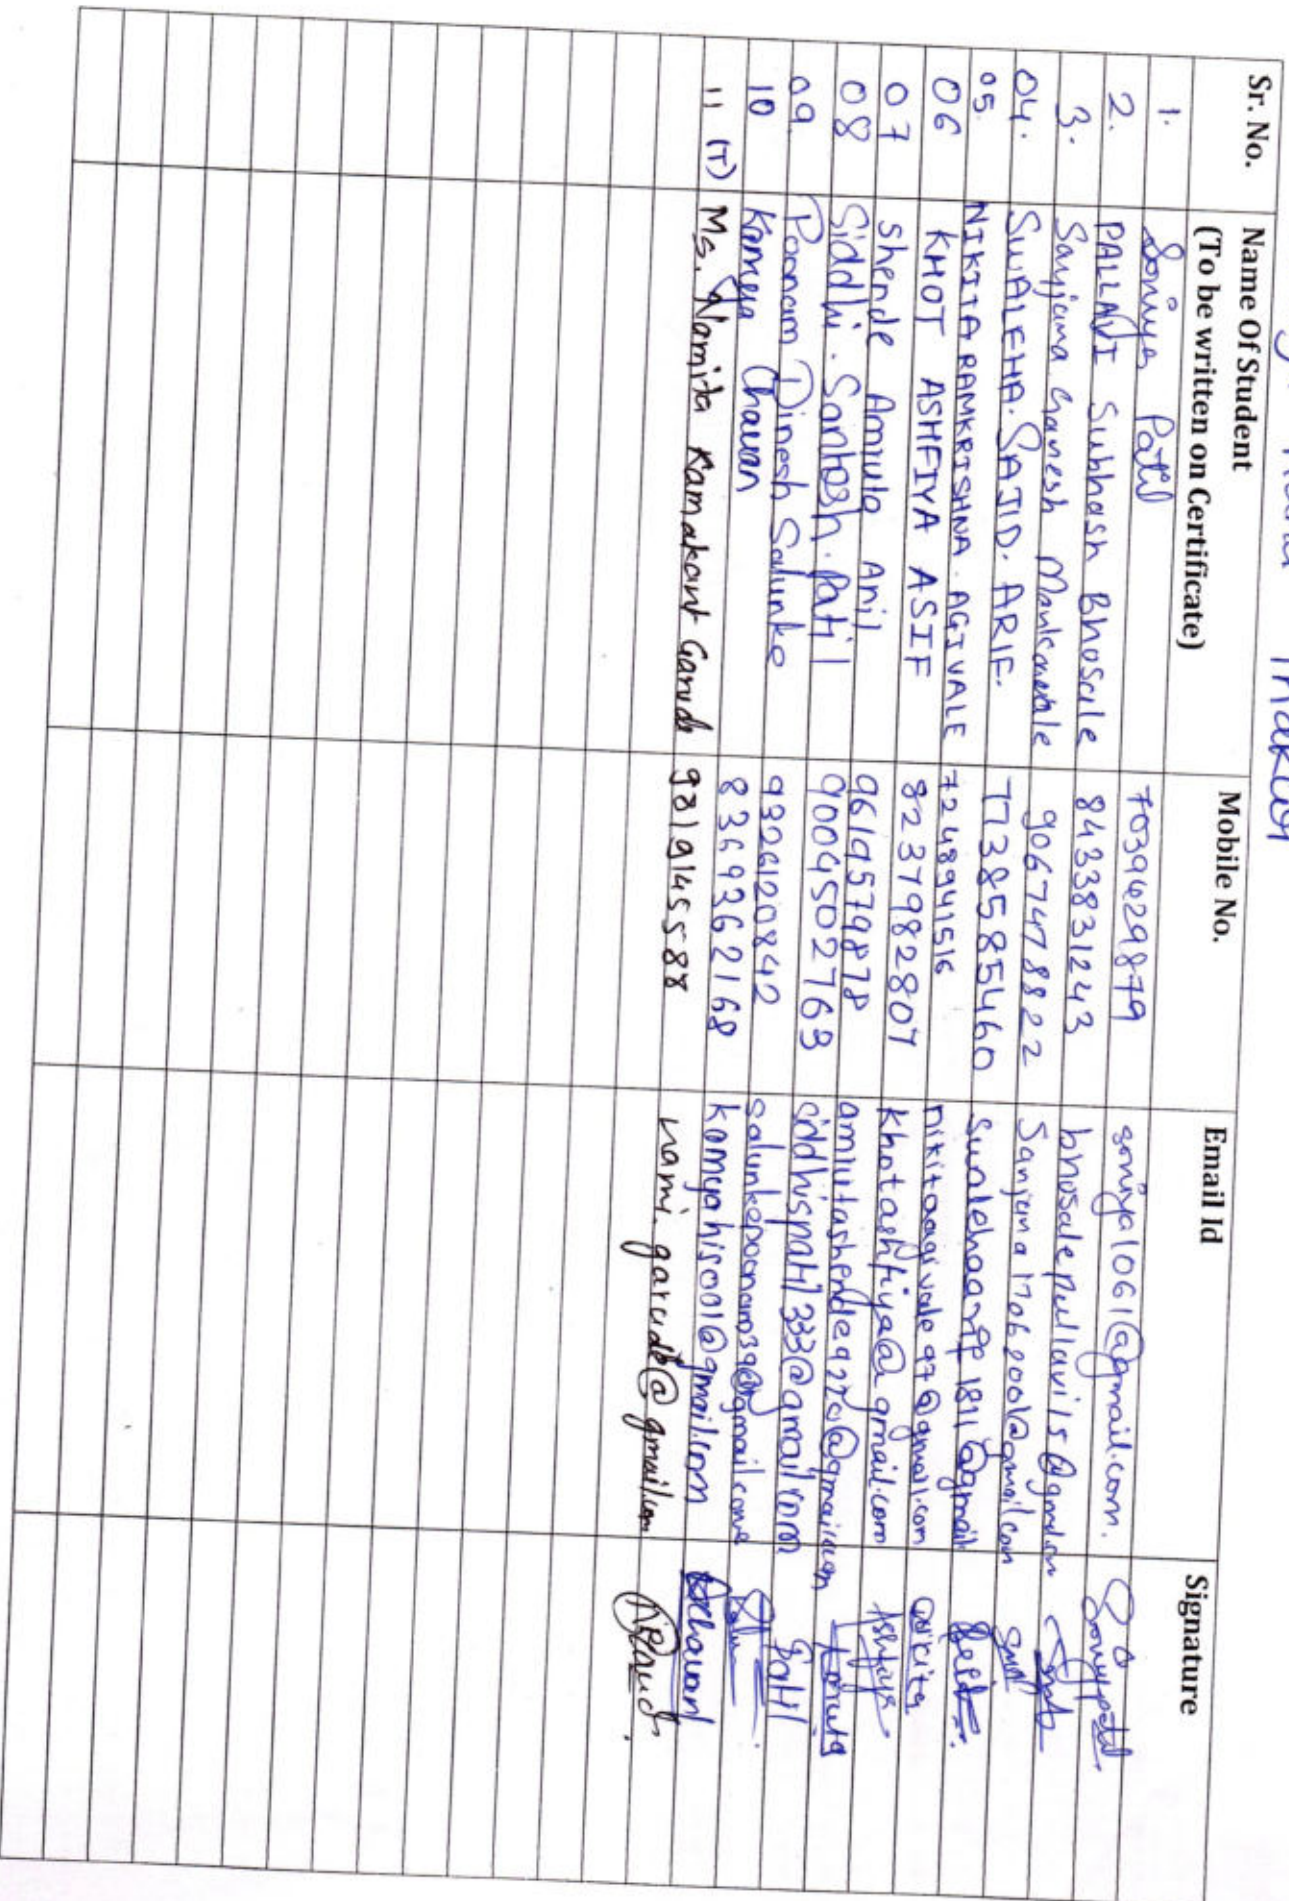 Thakur
Sr. No. Name Of Student (To be written on Certificate) Mobile No. Email Id Signature
1. Soniya Patil 7039429879 soniya1061@gmail.com. Soniyapatil
2. PALLAVI Subhash Bhosale 8433831243 bhosalepallavi15@gmail.com
3. Sanjana Ganesh 9067478822 Sanjana17062001@gmail.com
04. SWALEHA. SAJID. ARIF. 7738585460 Swalehaarif1811@gmail
05. NIKITA RAMKRISHNA. AGIVALE 7248941516 nikitaagivale97@gmail.com Nikita
06 KHOT ASHFIYA ASIF 8237982807 khotashfiya@gmail.com Ashfiya
07 Shende Amruta Anil 9619579878 amrutashende9220@gmail.com Amruta
08 Siddhi. Santosh. Patil 9004502763 siddhispatil333@gmail.com Patil
09. Poonam Dinesh Salunke 9326120842 salunkepoonam39@gmail.com
10 Kamya Chavan 8369362168 kamyahis001@gmail.com Kchavan
11 (T) Ms. Namita Kamakant Garude 9819145588 nami.garude@gmail.com